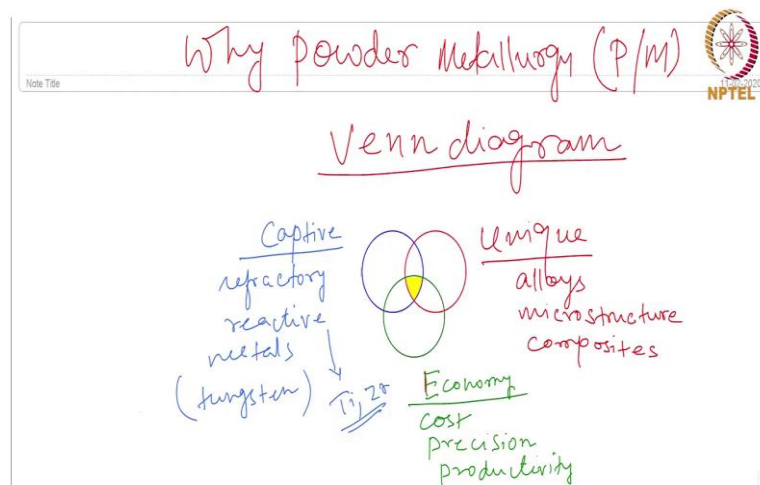 Why Powder Metallurgy (P/M)
Note Title
NPTEL
Venn diagram
Captive
refractory
reactive
metals
(tungsten)
Ti, Zr
Unique
alloys
microstructure
composites
Economy
cost
precision
productivity